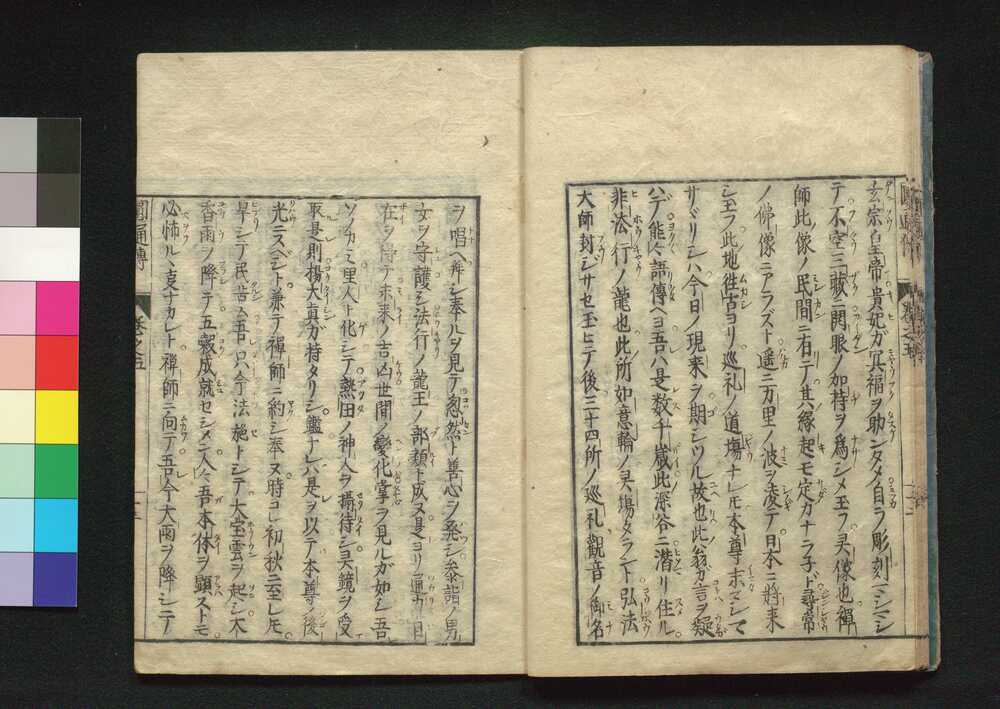 玄宗皇帝貴妃ガ冥福ヲ助ンタメ自ラ彫刻マシマシ
テ不空三藏ニ開眼ノ加持ヲ爲シメ玉フ灵像也禪
師此像ノ民間ニ有テ其縁起モ定カナラ子ド尋常
ノ佛像ニアラズト遥ニ万里ノ波ヲ凌テ日本ニ將来
シ玉フ此地徃古ヨリ巡礼ノ道塲ナレ𪜈本尊ホマシマ
サヾリシハ今日ノ現来ヲ期シツル故也此翁ガ言ヲ疑
ハデ能ク語傳ヘヨ吾ハ是数千歳此深谷ニ潜リ住ル
非法行ノ龍也此所如意輪ノ灵塲タラント弘法
大師封ジサセ玉ヒテ後三十四所ノ巡礼觀音ノ御名
ヲ唱ヘ奉ルヲ見テ忽然ト善心ヲ発シ参詣ノ男
女ヲ守護シ法行ノ龍王ノ部類ト成ヌ是ヨリ通力自
在ヲ得テ未来ノ吉凶世間ノ變化掌ヲ見ルガ如シ吾
ソノカミ里人ト化シテ熱田ノ神人ヲ攝待シ灵鏡ヲ受
取シ是則揚大真ガ持タリシ鑑ナレバ是ヲ以テ本尊ノ後
光ニスベシト兼テ禪師ニ約シ奉ヌ時コレ初秋ニ至レ𪜈
旱シテ民苦ム吾只今法施トシテ大宝雲ヲ起シ大
香雨ヲ降テ五糓成就セシメン人々吾本体ヲ顯ストモ
必怖ル丶亨ナカレト禪師ニ向テ吾今大雨ヲ降シテ
圓通傳
巻之五